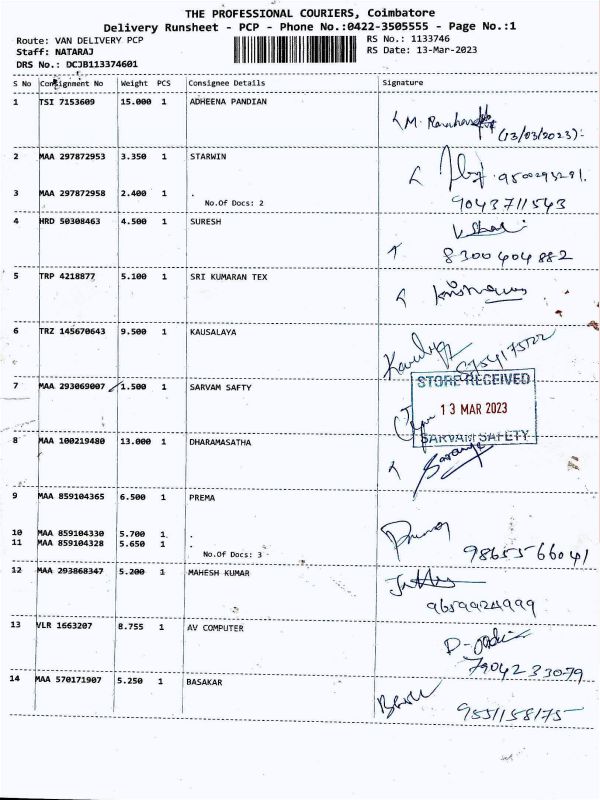 THE PROFESSIONAL COURIERS, Coimbatore
Delivery Runsheet - PCP - Phone No.:0422-3505555 - Page No.:1
Route: VAN DELIVERY PCP RS No.: 1133746
Staff: NATARAJ RS Date: 13-Mar-2023
DRS No.: DCJB113374601
S No Consignment No Weight PCS Consignee Details Signature
1 TSI 7153609 15.000 1 ADHEENA PANDIAN
(13/03/2023)
2 MAA 297872953 3.350 1 STARWIN
3 MAA 297872958 2.400 1 .
No.Of Docs: 2 9043711543
4 HRD 50308463 4.500 1 SURESH
8300404882
5 TRP 4218877 5.100 1 SRI KUMARAN TEX
6 TRZ 145670643 9.500 1 KAUSALAYA
7 MAA 293069007 13.500 1 SARVAM SAFTY
STORE RECEIVED
13 MAR 2023
SARVAM SAFETY
8 MAA 100219480 13.000 1 DHARAMASATHA
9 MAA 859104365 6.500 1 PREMA
10 MAA 859104330 5.700 1 .
11 MAA 859104328 5.650 1 .
No.Of Docs: 3 9865566041
12 MAA 293868347 5.200 1 MAHESH KUMAR
9659924999
13 VLR 1663207 8.755 1 AV COMPUTER
7904233079
14 MAA 570171907 5.250 1 BASAKAR
9551158175